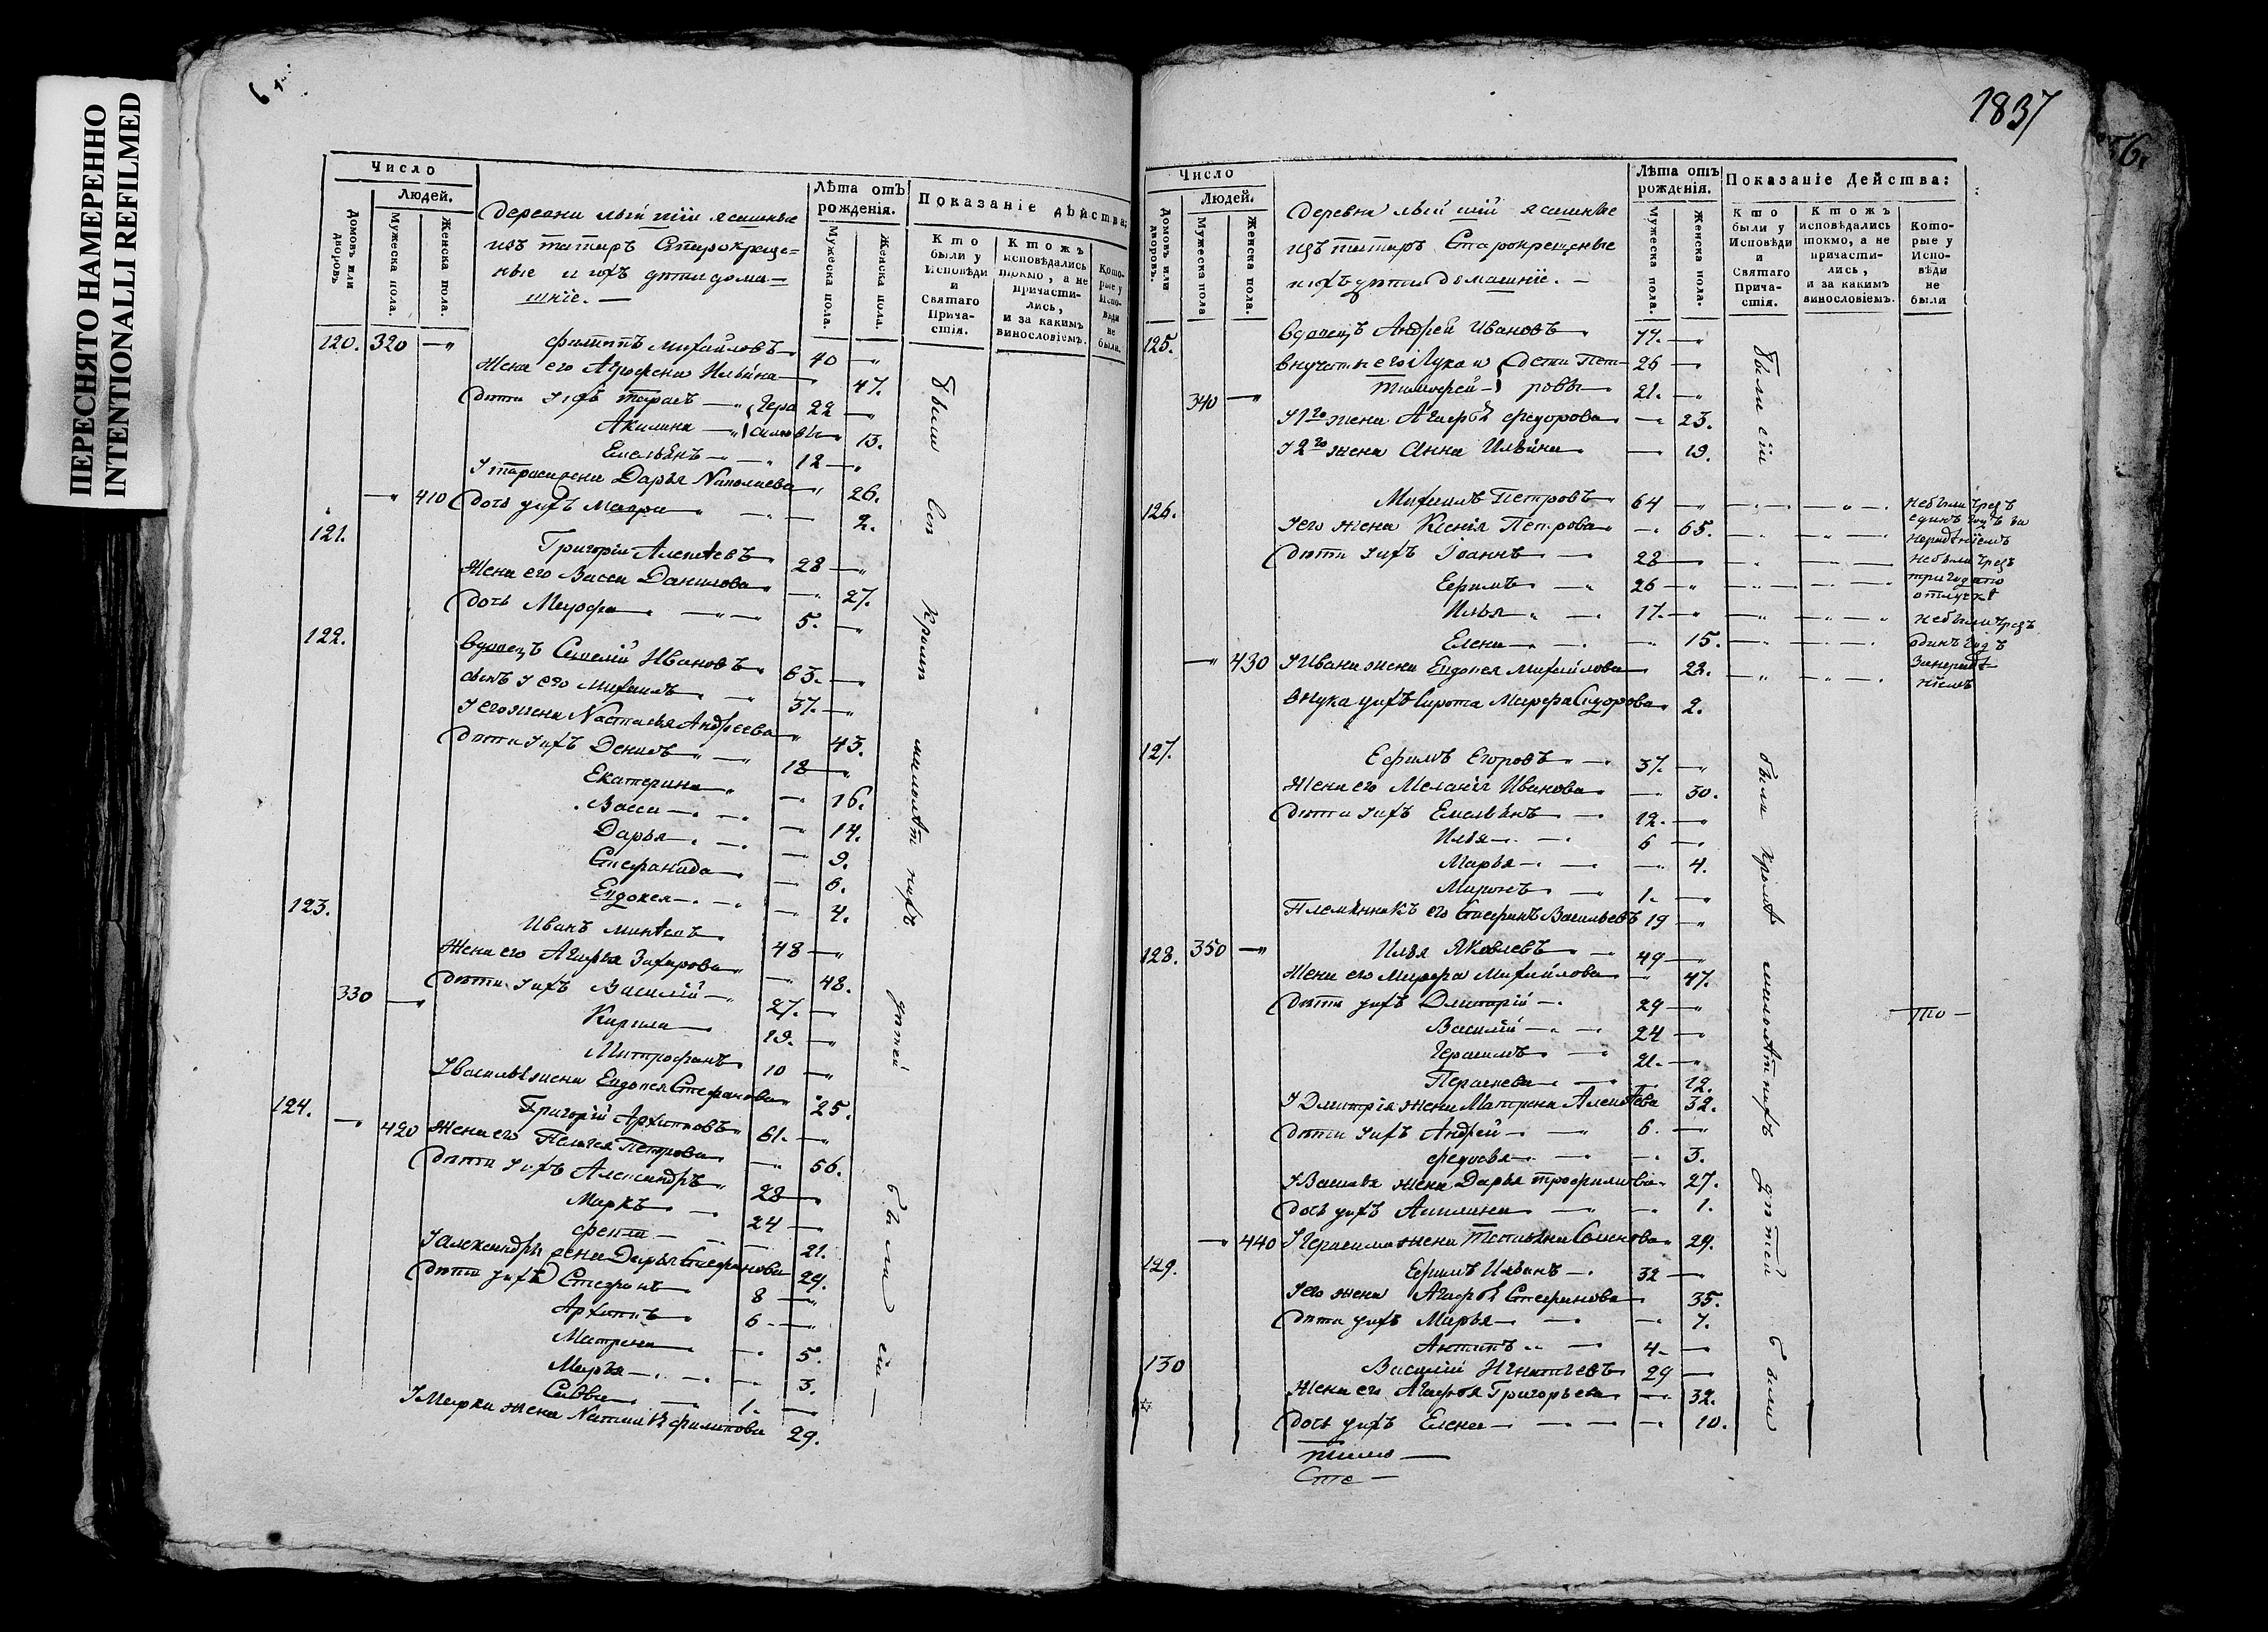 ПЕРЕСНЯТО НАМЕРЕННО
INTENTIONALLI REFILMED
Число
Людей.
Домовъ или дворовъ.
Мужеска пола.
Женска пола.
Деревни ясашные
изъ татаръ Старокреще=
ные и ихъ дѣти дома=
шніе. —
Лѣта отъ рожденія.
Мужеска пола.
Женска пола.
Показаніе дѣйства:
Кто были у Исповѣди и Святаго Прича-стія.
Ктожъ исповѣдались токмо, а не причасти-лись, и за какимъ винословіемъ.
Кото-рые у Испо-вѣди не были.
120. 320 — Филиппъ Михайловъ 40 —
Жена его Агрофена Ильина 47.
Дѣти ихъ Тарасъ — 22 —
Акилина — 13.
Емельянъ — 12 —
Дарья 26.
— 410 Дочь ихъ Мавра — 2.
121. Григорій Алексѣевъ 28 —
Жена его Васса Данилова — 27.
Дочь Марфа — 5. —
122. Вдовецъ Иванов 63. —
сынъ его Михаилъ 37. —
его жена Настасья Андреева 43.
Дѣти ихъ Денисъ 18 —
Екатерина — 16.
Васса — 14.
Дарья — 9.
Стефанида — 6.
Евдокея — 4.
123. Иванъ 48 —
Жена его Агафья Захарова — 48.
330 — Дѣти ихъ Василій — 27. —
Кирила — 19. —
Митрофанъ 10 —
Василья жена Евдокея Стефанова 25.
124. Григорій Архиповъ 61. —
— 420 Жена его Пелагея Петрова — 56.
Дѣти ихъ Александръ 28 —
Маркъ — 24 —
Фекла — 21.
Александра жена Дарья Стефанова 29.
Дѣти ихъ Стефанъ 8 —
Архипъ 6 —
Матрена — 5.
Марья — 3.
Савва — 1. —
Марка жена Наталья Филипова 29.
были всѣ кромѣ малолѣт нихъ дѣтей
были сіи —
1837
56.
Число
Людей.
Домовъ или дворовъ.
Мужеска пола
Женска пола.
Деревни ясашные
изъ татаръ Старокрещеные
и ихъ дѣти домашніе. —
Лѣта отъ рожденія.
Мужеска пола.
Женска пола.
Показаніе Дѣйства:
Кто были у Исповѣди и Святаго Прича-стія.
Ктожъ исповѣдались токмо, а не причасти-лись, и за какимъ винословіемъ.
Кото-рые у Испо-вѣди не были
125. Вдовецъ Андрей Ивановъ 77. —
внучата его Лука и дети Пет- 26 —
340 — Тимофей — ровы 21. —
1го жена Агафья Федорова — 23.
2го жена Анна Ильина — 19.
были сіи
126. Михаилъ Петровъ 64 —
его жена Ксенія Петрова — 65.
Дѣти ихъ Іоаннъ — 28 —
Ефимъ — 26 —
Илья — 17. —
Елена — 15.
— 430 Ивана жена Евдокея Михайлова 22.
внука ихъ сирота Марфа Сидорова 2.
небыли чрезъ
единъ годъ за
нерадѣніемъ
небыли чрезъ
три года по
отлучкѣ
небыли чрезъ
одинъ годъ
за нерадѣ
ніемъ
127. Ефимъ Егоровъ — 37. —
Жена его Меланія Иванова — 30.
Дѣти ихъ Емельянъ — 12. —
Илья — 6 —
Марья — 4.
Миронъ — 1. —
Племянникъ его Стефанъ Васильевъ 19 —
128. 350 — Илья Яковлевъ — 49 —
Жена его Марфа Михайлова — 47.
Дѣти ихъ Дмитрій — 29 —
Василій — 24 —
Герасимъ — 21. —
12.
Дмитрія жена Матрена Алексѣева 32.
Дѣти ихъ Андрей — 6. —
Федосья — 3.
Василья жена Дарья Трофимова 27.
Дочь ихъ Акилина — 1.
— 440 Герасима жена Татьяна Семенова 29.
129. Ефимъ Ильинъ — 32 —
его жена Агафья Стефанова — 35.
Дѣти ихъ Марья — 7.
Антипъ — 4. —
130 Василій Игнатьевъ 29 —
Жена его Агафья Григорьева — 32.
Дочь ихъ Елена — 10.
были кромѣ малолѣтнихъ дѣтей были